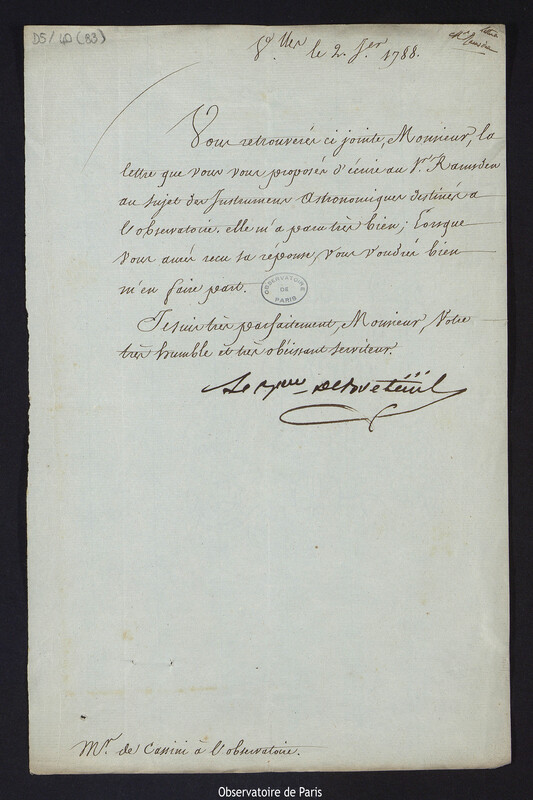 D5/40 (83)
V.lles le 2. Jer 1788.
Vous retrouverés ci jointe, Monsieur, la
lettre que vous vous proposés d'écrire au Sr. Ramsden
au sujet des Instrumens Astronomiques destinés a
l'observatoire. elle m'a paru très bien; Lorsque
vous aurés recu sa réponse, vous voudrés bien
m'en faire part.
OBSERVATOIRE
DE
PARIS
Je suis très parfaitement, Monsieur, Votre
très humble et très obéissant serviteur.
Le Bon de Breteuil
Mr. de Cassini à l'observatoire.
Observatoire de Paris